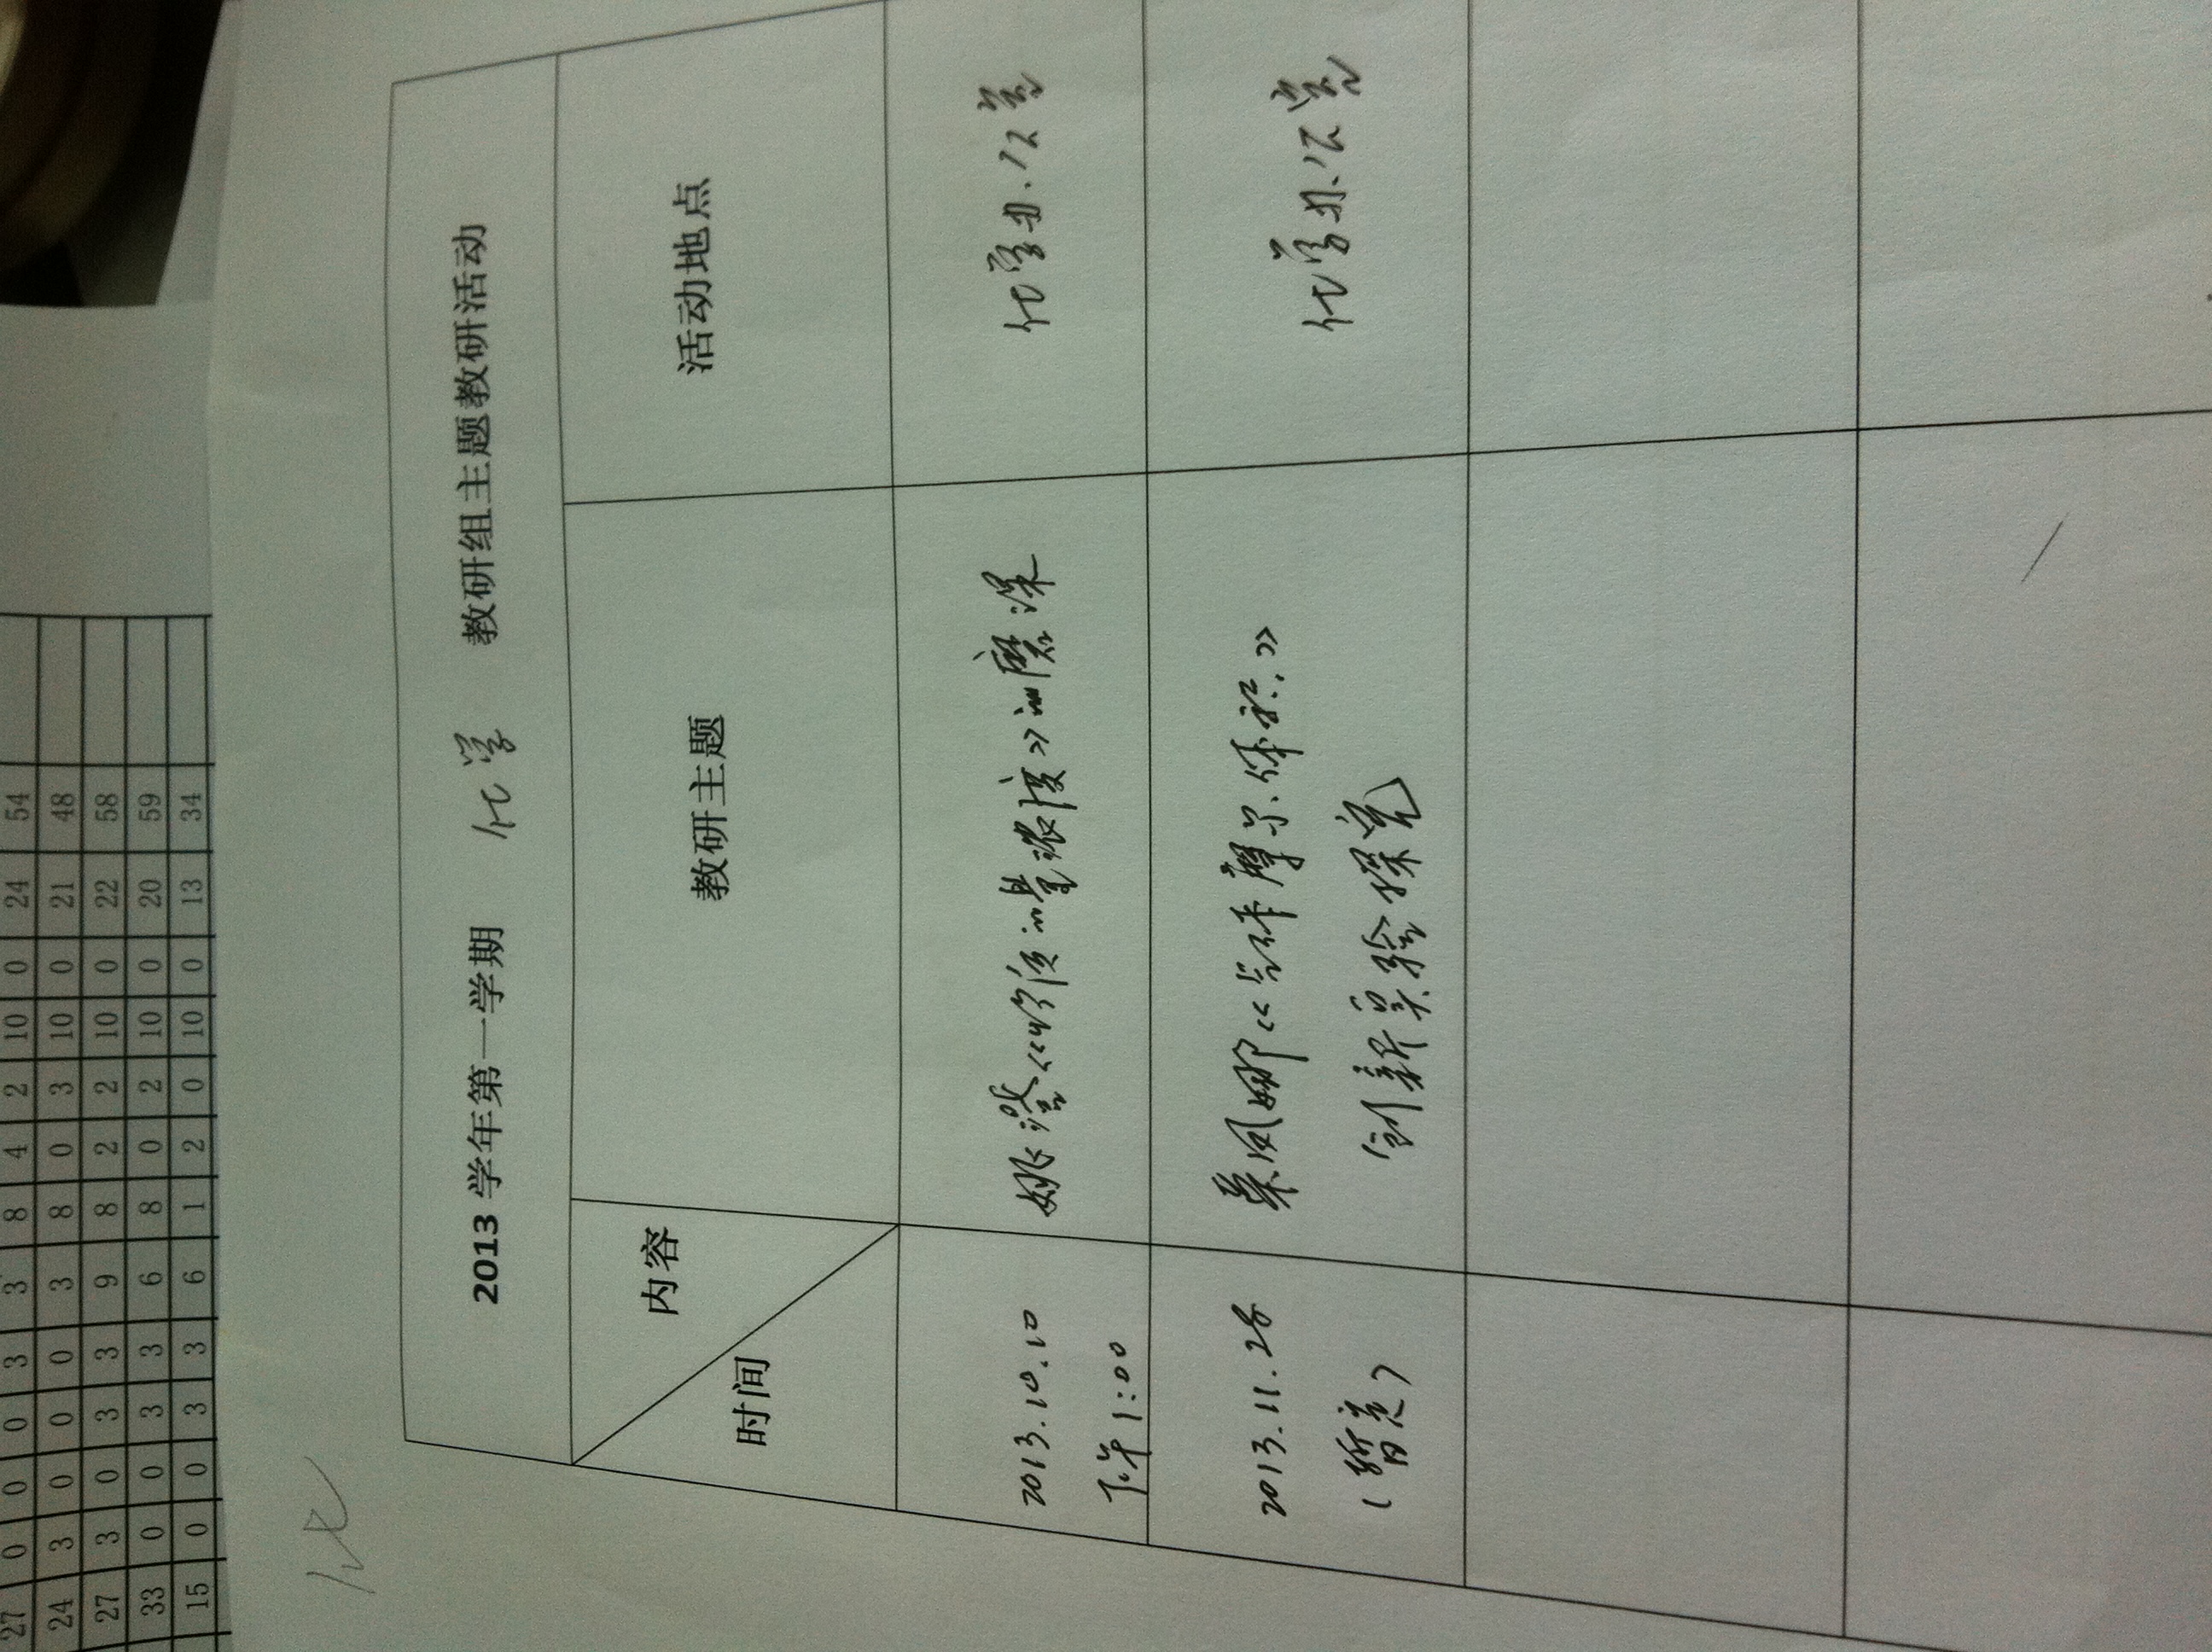 化
2013 学年第一学期 化学 教研组主题教研活动
内容
时间
教研主题
活动地点
2013.10.10
下午 1:00
姚澄《物质的量浓度》的磨课
化学办公室
2013.11.28
(暂定)
凤娜《气体摩尔体积》
创新实验探究
化学办公室
27 0 0 0 3 3 8 4 2 10 0 24 54
24 3 0 0 0 3 8 0 3 10 0 21 48
27 3 0 3 3 9 8 2 2 10 0 22 58
33 0 0 3 3 6 8 0 2 10 0 20 59
15 0 0 3 3 6 1 2 0 10 0 13 34